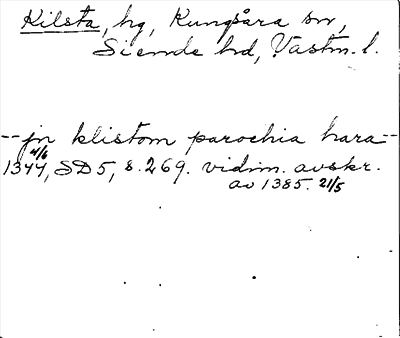 Kilsta, hg, Kungsåra sn,
Siende hd, Västm. l.
-- jn klistom parochia hara --
4/6
1344, SD5, s. 269. vidim. avskr.
av 1385. 21/5